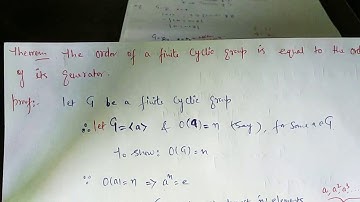 Theorem The order of a finite cyclic group is equal to the ord
of its generator.
Proof:- let G be a finite cyclic group
∴ let G = <a> & O(a) = n (say), for some a ∈ G
To show: O(G) = n
∵ O(a) = n => aⁿ = e
elements
a, a², a³